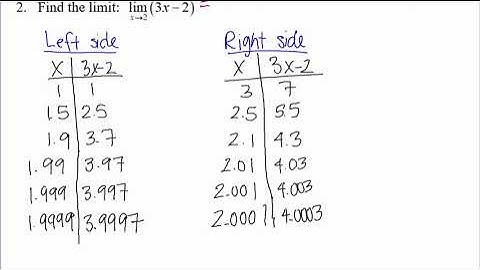 2. Find the limit: lim x→2 (3x − 2) =
Left side
x 3x-2
1 1
1.5 2.5
1.9 3.7
1.99 3.97
1.999 3.997
1.9999 3.9997
Right side
x 3x-2
3 7
2.5 5.5
2.1 4.3
2.01 4.03
2.001 4.003
2.0001 4.0003